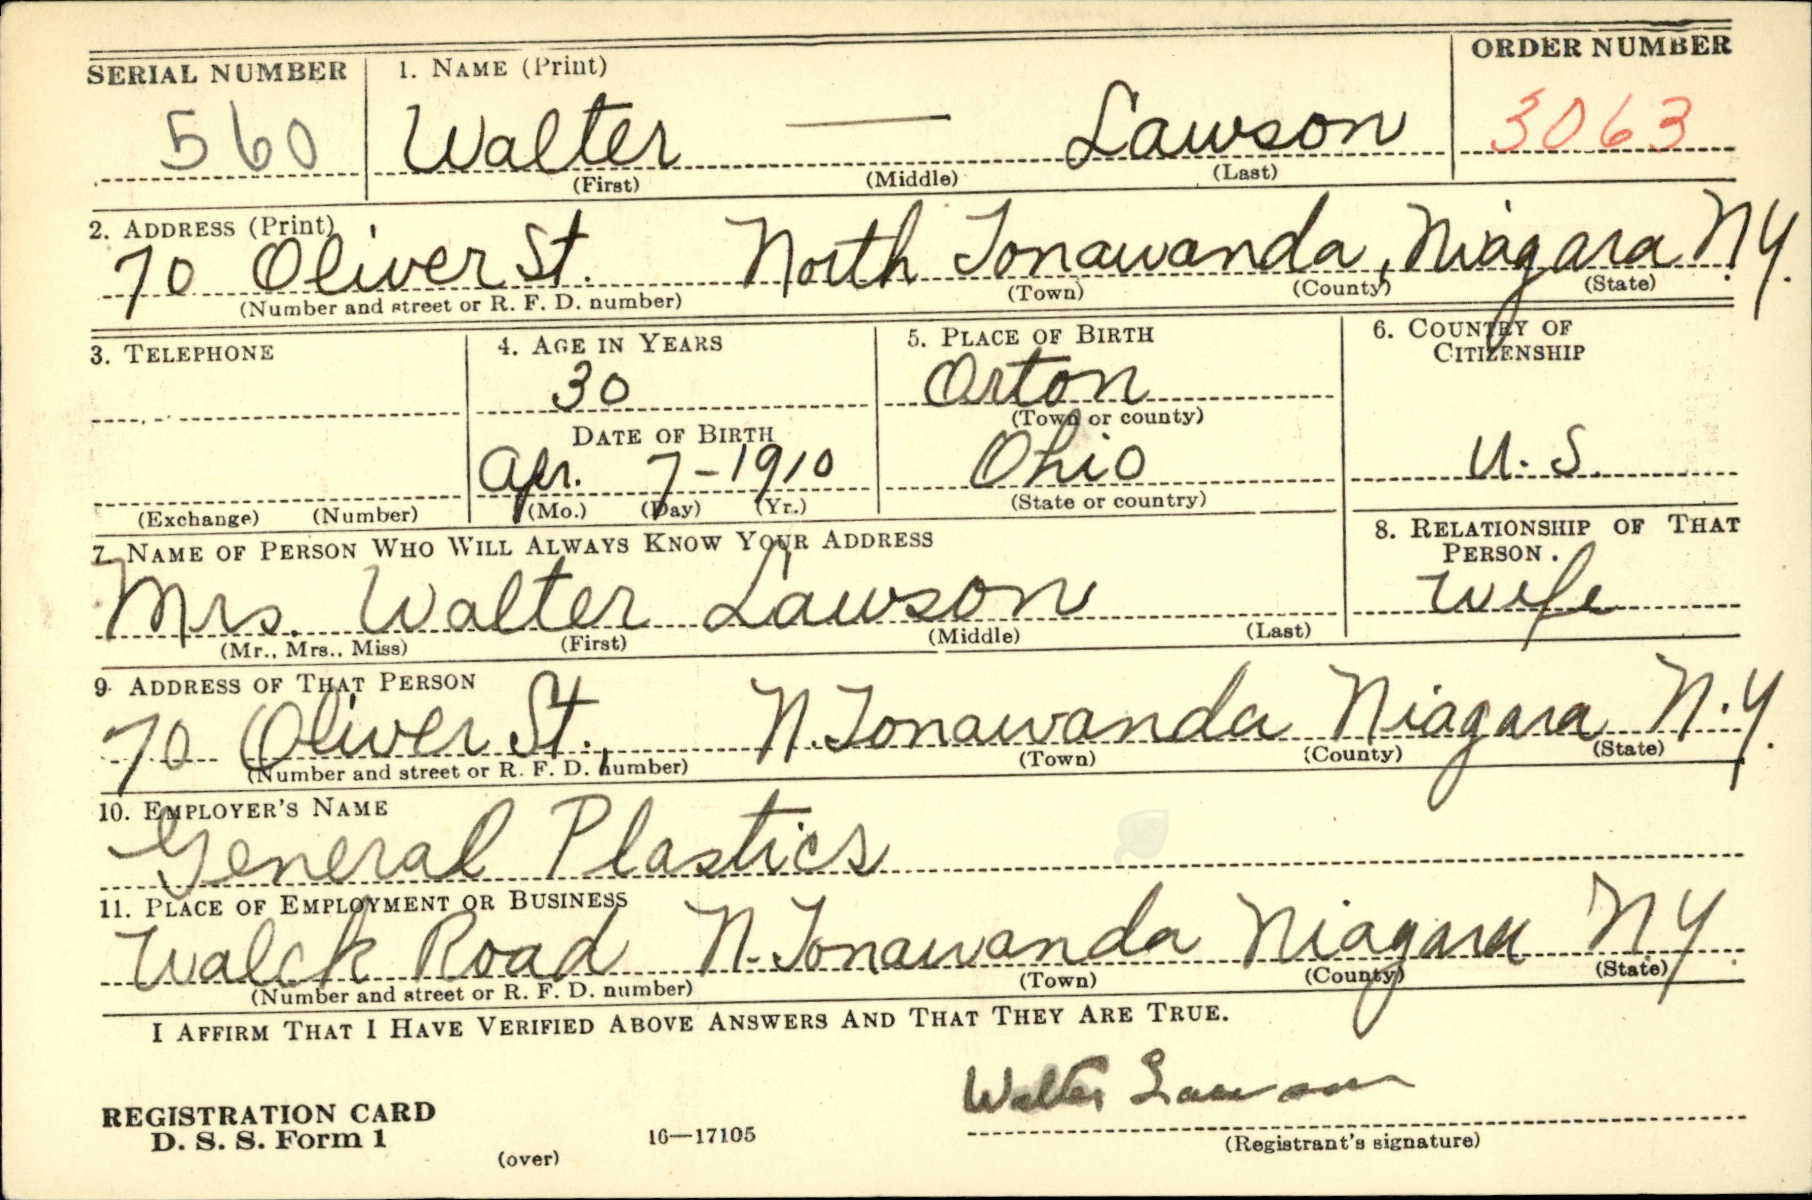 SERIAL NUMBER
560
1. NAME (Print)
Walter — Lawson
(First) (Middle) (Last)
ORDER NUMBER
3063
2. ADDRESS (Print)
70 Oliver St. North Tonawanda, Niagara N.Y.
(Number and street or R. F. D. number) (Town) (County) (State)
3. TELEPHONE
(Exchange) (Number)
4. AGE IN YEARS
30
DATE OF BIRTH
Apr. 7-1910
(Mo.) (Day) (Yr.)
5. PLACE OF BIRTH
Orton
(Town or county)
Ohio
(State or country)
6. COUNTRY OF
CITIZENSHIP
U. S.
7. NAME OF PERSON WHO WILL ALWAYS KNOW YOUR ADDRESS
Mrs. Walter Lawson
(Mr., Mrs., Miss) (First) (Middle) (Last)
8. RELATIONSHIP OF THAT
PERSON.
Wife
9. ADDRESS OF THAT PERSON
70 Oliver St., N. Tonawanda Niagara N.Y.
(Number and street or R. F. D. number) (Town) (County) (State)
10. EMPLOYER'S NAME
General Plastics
11. PLACE OF EMPLOYMENT OR BUSINESS
Walck Road N. Tonawanda Niagara N.Y.
(Number and street or R. F. D. number) (Town) (County) (State)
I AFFIRM THAT I HAVE VERIFIED ABOVE ANSWERS AND THAT THEY ARE TRUE.
Walter Lawson
(Registrant's signature)
REGISTRATION CARD
D. S. S. Form 1
(over)
16—17105